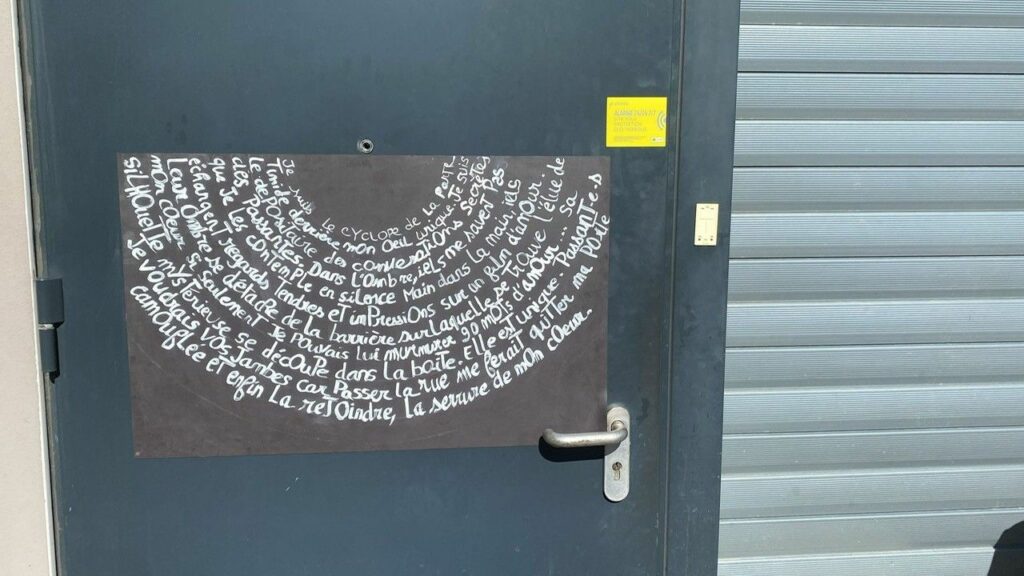 Je suis le CYCLOPE de la PORTE
Timide derrière mon oeil unique je suis
le dépositaire des conversations secrètes
des passantes. Dans l'ombre, iels ne me savent pas
que je les contemple en silence main dans la main, iels
échangent regards tendres et impressions sur un film d'amour.
Leur ombre se détache de la barrière sur laquelle se l'élue de
mon coeur. Si seulement je pouvais lui murmurer 90 mots d'amour... Sa
silhouette mystérieuse se découpe dans la boîte. Elle est unique. Passant·e·s
Je voudrais vos jambes car passer la rue me ferait quitter ma
camouflée et enfin la rejoindre, la serrure de mon coeur.